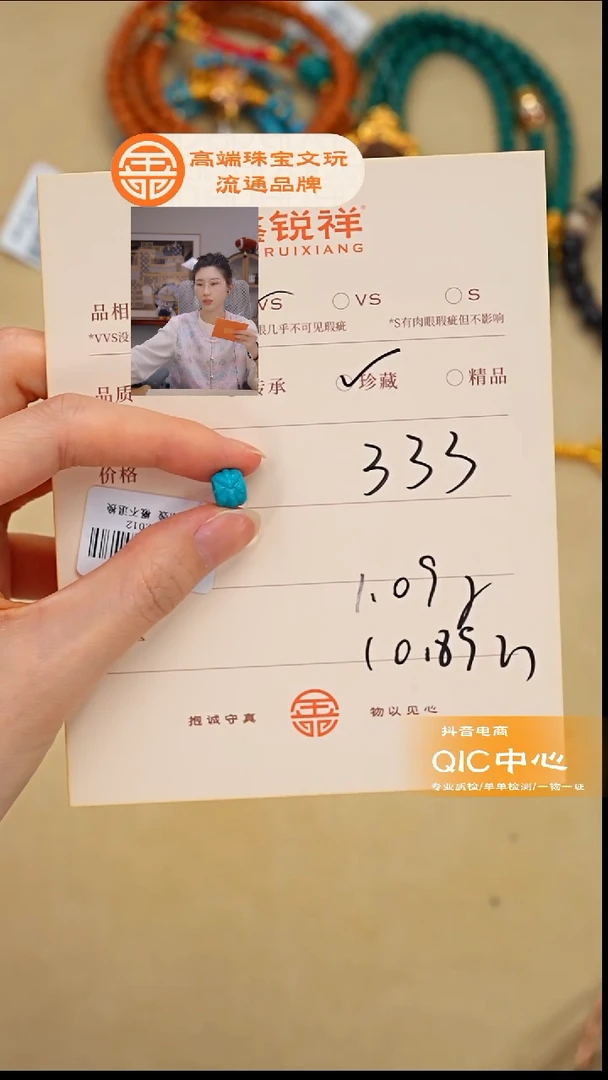 高端珠宝文玩
流通品牌
锐祥
RUIXIANG
品相
VS
VS
S
*VVS没
眼几乎不可见瑕疵
*S有肉眼瑕疵但不影响
品质
传承
珍藏
精品
价格
333
1.09g
抱诚守真
物以见心
抖音电商
QIC中心
专业质检/单单检测/一物一证